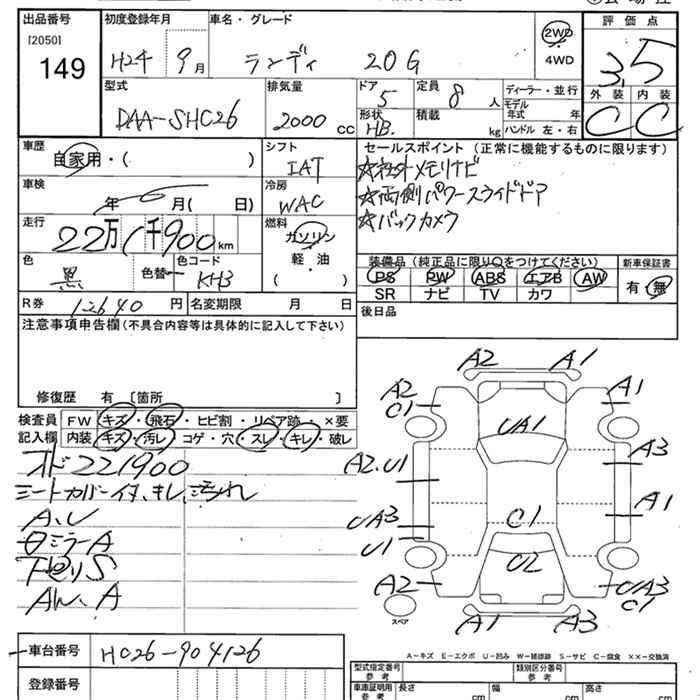 出品番号 初度登録年月 車名・グレード 評価点
[2050]
149
H24 9月 ランディ 20G 2WD 4WD 3.5
型式 排気量 ドア 定員 ディーラー・並行 外装 内装
DAA-SHC26 2000cc 5 8人 モデル年式 年 C C
形状 積載 HB. kg ハンドル 左・右
車歴 シフト セールスポイント(正常に機能するものに限ります)
自家用・( ) IAT
☆ メモリナビ
車検 冷房 ☆両側パワースライドドア
年 6月( 日) WAC ☆バックカメラ
走行 燃料
22万1千900km ガソリン・軽・油 ( )
装備品(純正品に限り○をつけてください) 新車保証書
PS PW ABS エアB AW 有・無
SR ナビ TV カワ
色 黒 色替 色コード KH3
後日品
R券 12640円 名変期限 月 日
注意事項申告欄(不具合内容等は具体的に記入して下さい)
修復歴 有〔箇所 〕
検査員 FW キズ・飛石・ヒビ割・リペア跡・×要
記入欄 内装 キズ・汚レ・コゲ・穴・スレ・キレ・破レ
オド221900
シートカバーイタ、キレ、汚れ
A、U
ミラーA
S
AW、A
A2 A1
A2 C1 A1
UA1
A2.U1 A3
A1
UA3 C1
U1 U2
A2 UA3 C1
スペア A1 A3
A－キズ E－エクボ U－凹み W－補修跡 S－サビ C－腐食 ××－交換済
車台番号 HC26-904126
型式指定番号 参考 類別区分番号 参考
登録番号
車庫証明用 参考 長さ cm 幅 cm 高さ cm